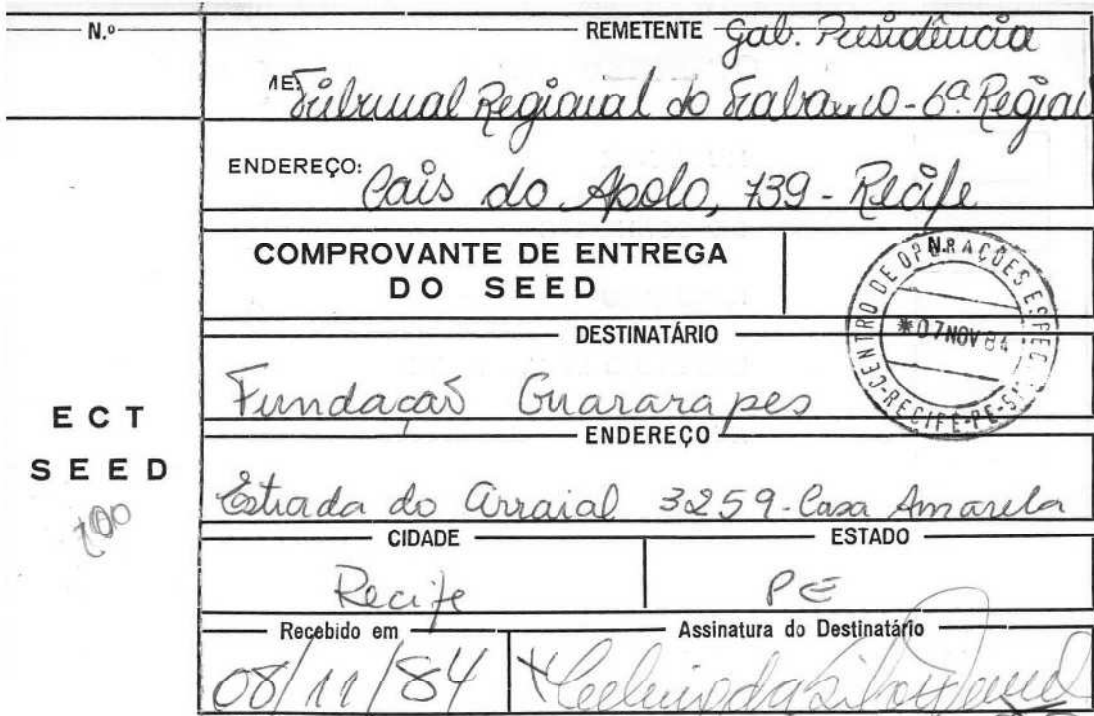 N.º
REMETENTE Gab. Presidência
ME: Tribunal Regional do Trabalho - 6ª Região
ENDEREÇO: Cais do Apolo, 739 - Recife
COMPROVANTE DE ENTREGA
DO SEED
N.
CENTRO DE OPERAÇÕES ESPEC
*07 NOV 84
RECIFE-PE
DESTINATÁRIO
Fundação Guararapes
ECT
SEED
ENDEREÇO
Estrada do Arraial 3259 - Casa Amarela
CIDADE
ESTADO
Recife
PE
Recebido em
Assinatura do Destinatário
08/11/84
da Silva